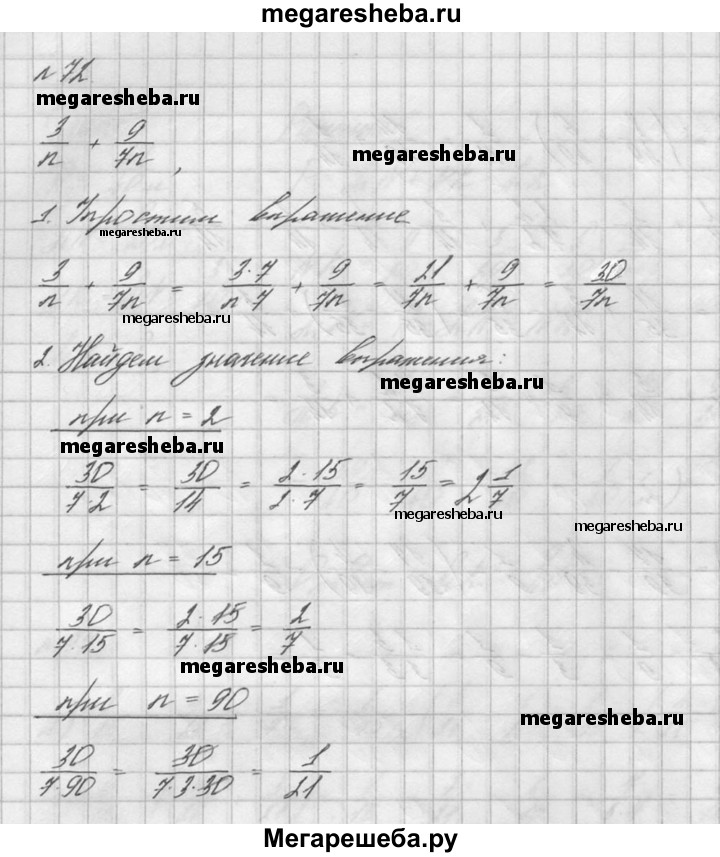 megaresheba.ru
№ 72
megaresheba.ru
3/n + 9/7n,
megaresheba.ru
1. Упростим выражение
megaresheba.ru
3/n + 9/7n = 3·7/n·7 + 9/7n = 21/7n + 9/7n = 30/7n
megaresheba.ru
2. Найдем значение выражения:
megaresheba.ru
при n = 2
megaresheba.ru
30/7·2 = 30/14 = 2·15/2·7 = 15/7 = 2 1/7
megaresheba.ru
megaresheba.ru
при n = 15
30/7·15 = 2·15/7·15 = 2/7
megaresheba.ru
при n = 90
megaresheba.ru
30/7·90 = 30/7·3·30 = 1/21
Мегарешеба.ру